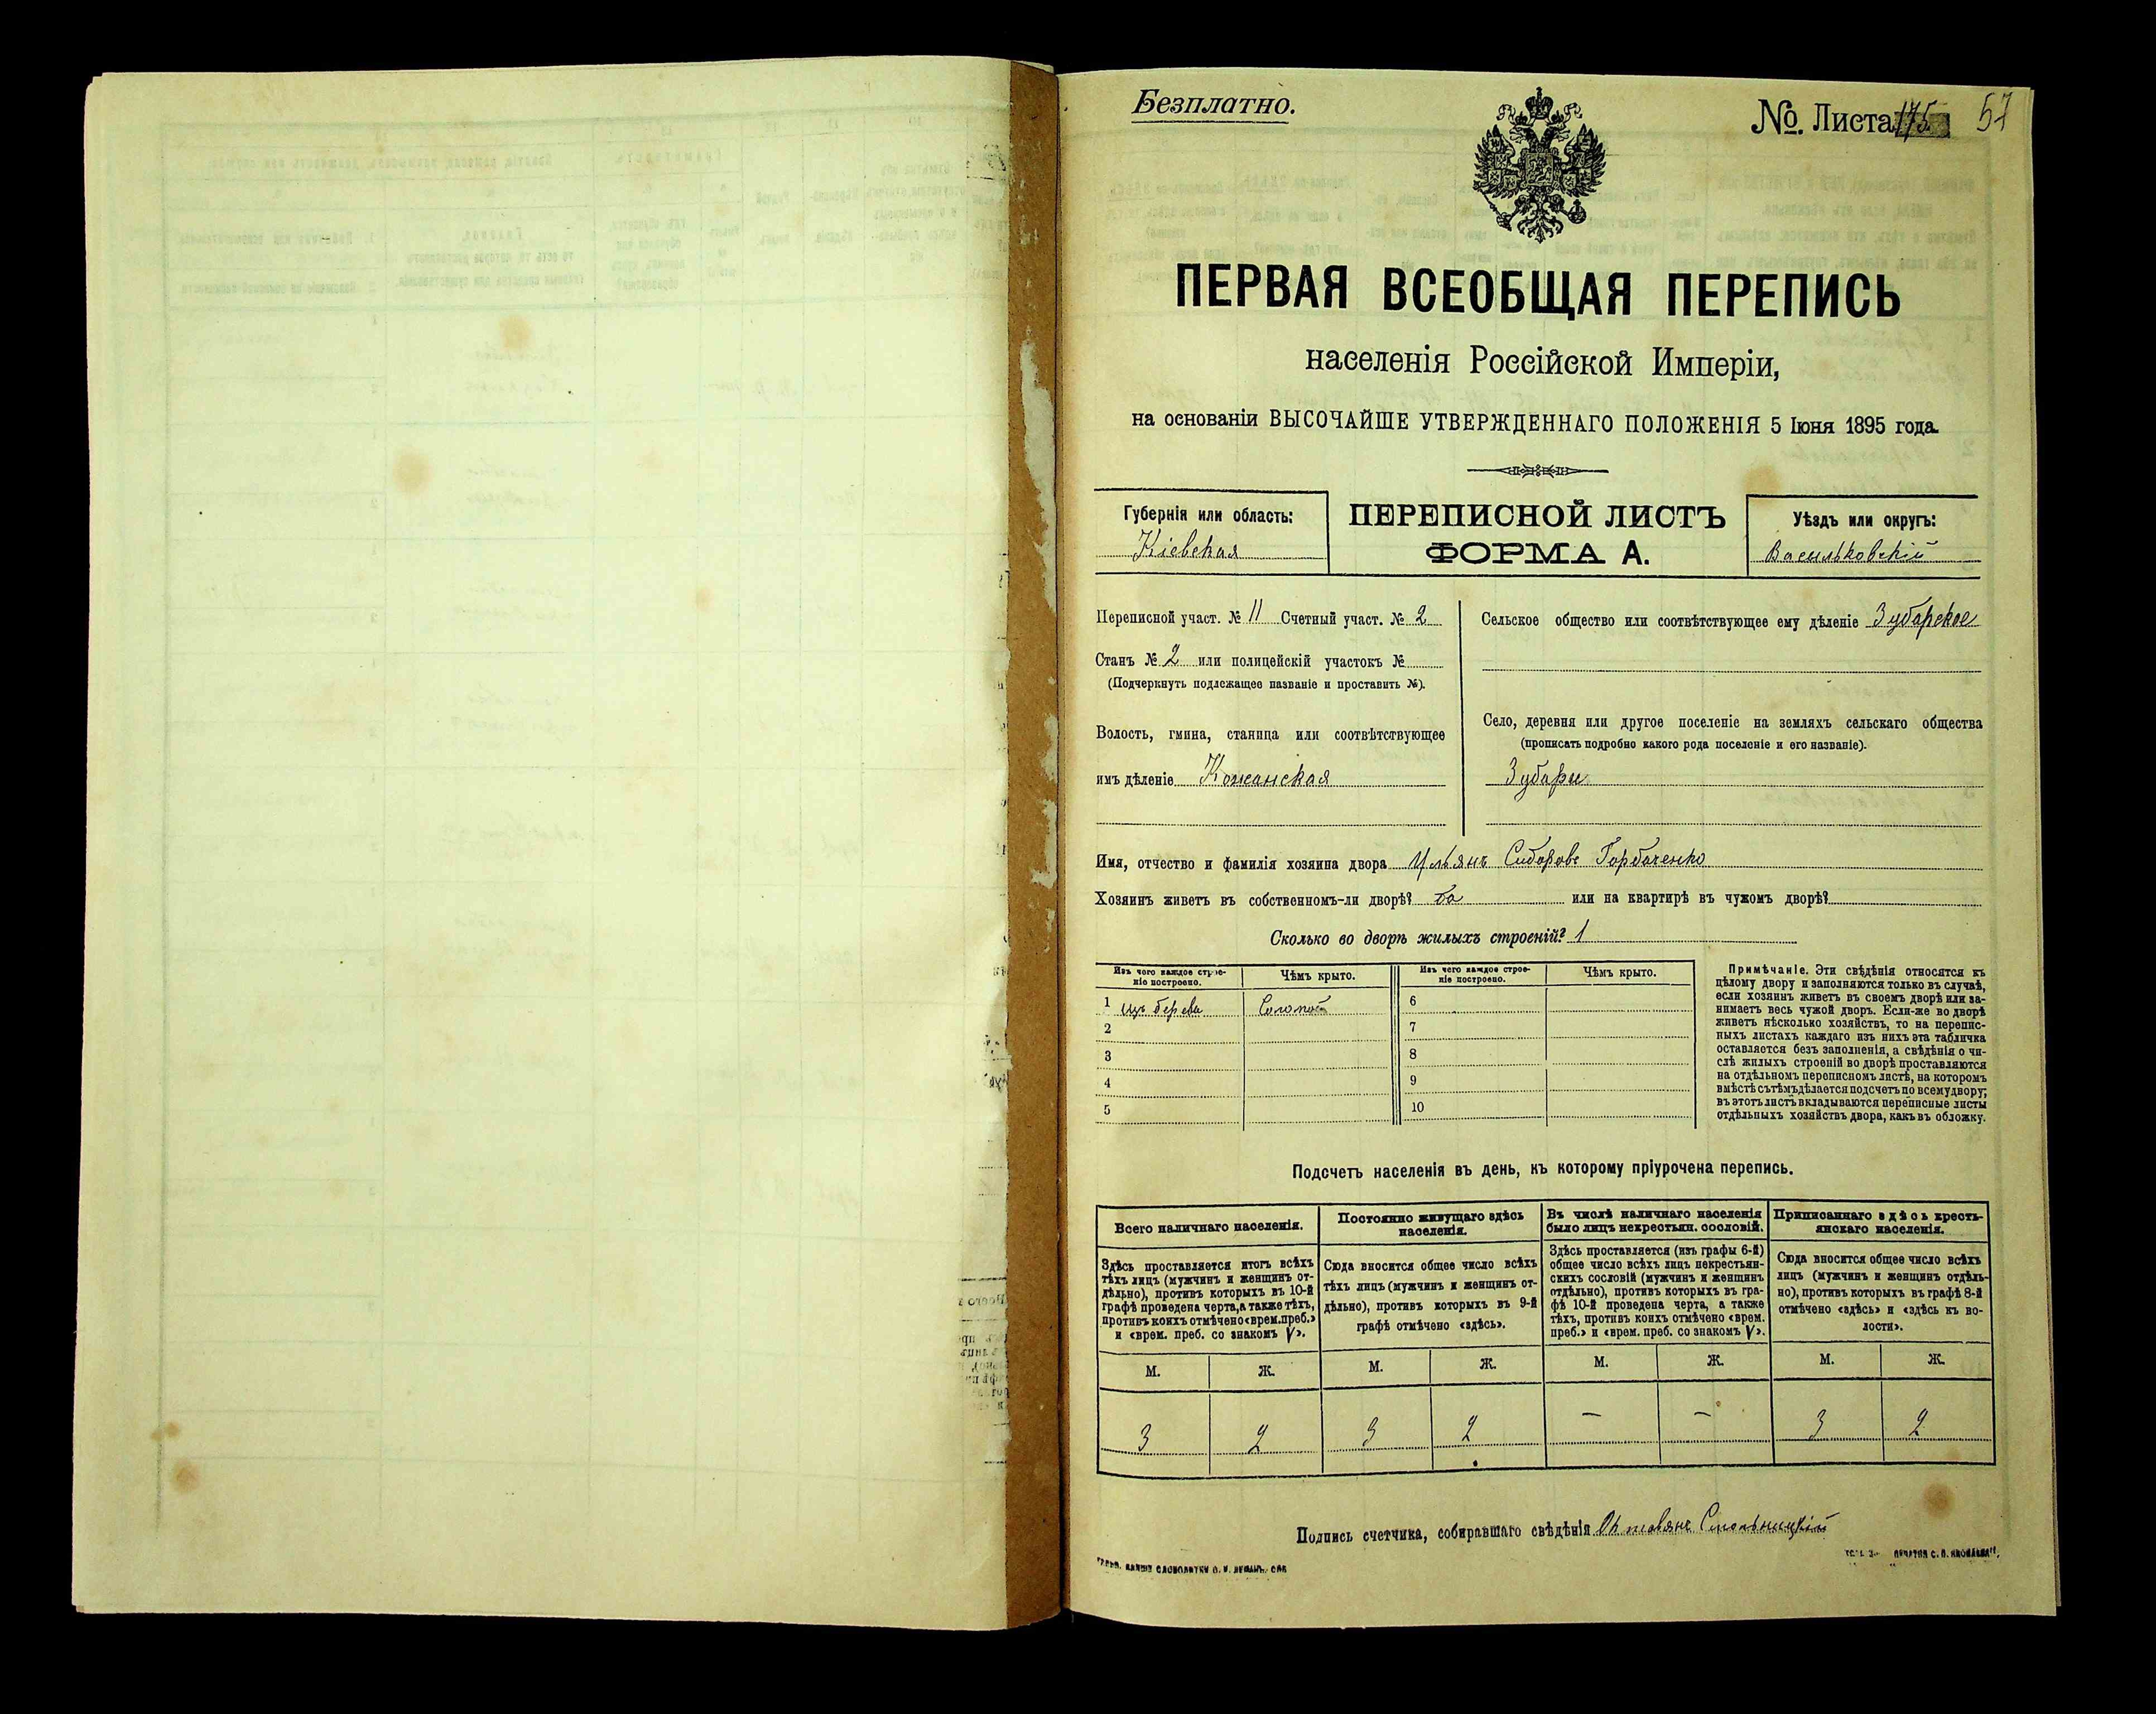 Безплатно.
№. Листа 175
57
ПЕРВАЯ ВСЕОБЩАЯ ПЕРЕПИСЬ
населенія Россійской Имперіи,
на основаніи ВЫСОЧАЙШЕ УТВЕРЖДЕННАГО ПОЛОЖЕНІЯ 5 Іюня 1895 года.
Губернія или область:
Кіевская
ПЕРЕПИСНОЙ ЛИСТЪ
ФОРМА А.
Уѣздъ или округъ:
Васильковскій
Переписной участ. № 11 Счетный участ. № 2
Станъ № 2 или полицейскій участокъ №
(Подчеркнуть подлежащее названіе и проставить №).
Волость, гмина, станица или соотвѣтствующее
имъ дѣленіе Кожанская
Сельское общество или соотвѣтствующее ему дѣленіе Зубарское
Село, деревня или другое поселеніе на земляхъ сельскаго общества
(прописать подробно какого рода поселеніе и его названіе).
Зубари
Имя, отчество и фамилія хозяина двора Ульянъ Сидоровъ Горбаченко
Хозяинъ живетъ въ собственномъ-ли дворѣ? да или на квартирѣ въ чужомъ дворѣ?
Сколько во дворѣ жилыхъ строеній? 1
Изъ чего каждое строе-
ніе построено.
Чѣмъ крыто.
Изъ чего каждое строе-
ніе построено.
Чѣмъ крыто.
1 изъ дерева Соломой 6
2 7
3 8
4 9
5 10
Примѣчаніе. Эти свѣдѣнія относятся къ
цѣлому двору и заполняются только въ случаѣ,
если хозяинъ живетъ въ своемъ дворѣ или за-
нимаетъ весь чужой дворъ. Если-же во дворѣ
живетъ нѣсколько хозяйствъ, то на перепис-
ныхъ листахъ каждаго изъ нихъ эта табличка
оставляется безъ заполненія, а свѣдѣнія о чи-
слѣ жилыхъ строеній во дворѣ проставляются
на отдѣльномъ переписномъ листѣ, на которомъ
вмѣстѣ съ тѣмъ дѣлается подсчетъ по всему двору;
въ этотъ листъ вкладываются переписные листы
отдѣльныхъ хозяйствъ двора, какъ въ обложку.
Подсчетъ населенія въ день, къ которому пріурочена перепись.
Всего наличнаго населенія.
Здѣсь проставляется итогъ всѣхъ
тѣхъ лицъ (мужчинъ и женщинъ от-
дѣльно), противъ которыхъ въ 10-й
графѣ проведена черта, а также тѣхъ,
противъ коихъ отмѣчено «врем. преб.»
и «врем. преб. со знакомъ V».
Постоянно живущаго здѣсь
населенія.
Сюда вносится общее число всѣхъ
тѣхъ лицъ (мужчинъ и женщинъ от-
дѣльно), противъ которыхъ въ 9-й
графѣ отмѣчено «здѣсь».
Въ числѣ наличнаго населенія
было лицъ некрестьян. сословій.
Здѣсь проставляется (изъ графы 6-й)
общее число всѣхъ лицъ некрестьян-
скихъ сословій (мужчинъ и женщинъ
отдѣльно), противъ которыхъ въ гра-
фѣ 10-й проведена черта, а также
тѣхъ, противъ коихъ отмѣчено «врем.
преб.» и «врем. преб. со знакомъ V».
Приписаннаго здѣсь кресть-
янскаго населенія.
Сюда вносится общее число всѣхъ
лицъ (мужчинъ и женщинъ отдѣль-
но), противъ которыхъ въ графѣ 8-й
отмѣчено «здѣсь» и «здѣсь къ во-
лости».
М. Ж. М. Ж. М. Ж. М. Ж.
3 2 3 2 — — 3 2
Подпись счетчика, собиравшаго свѣдѣнія Октавянъ Смольницкій